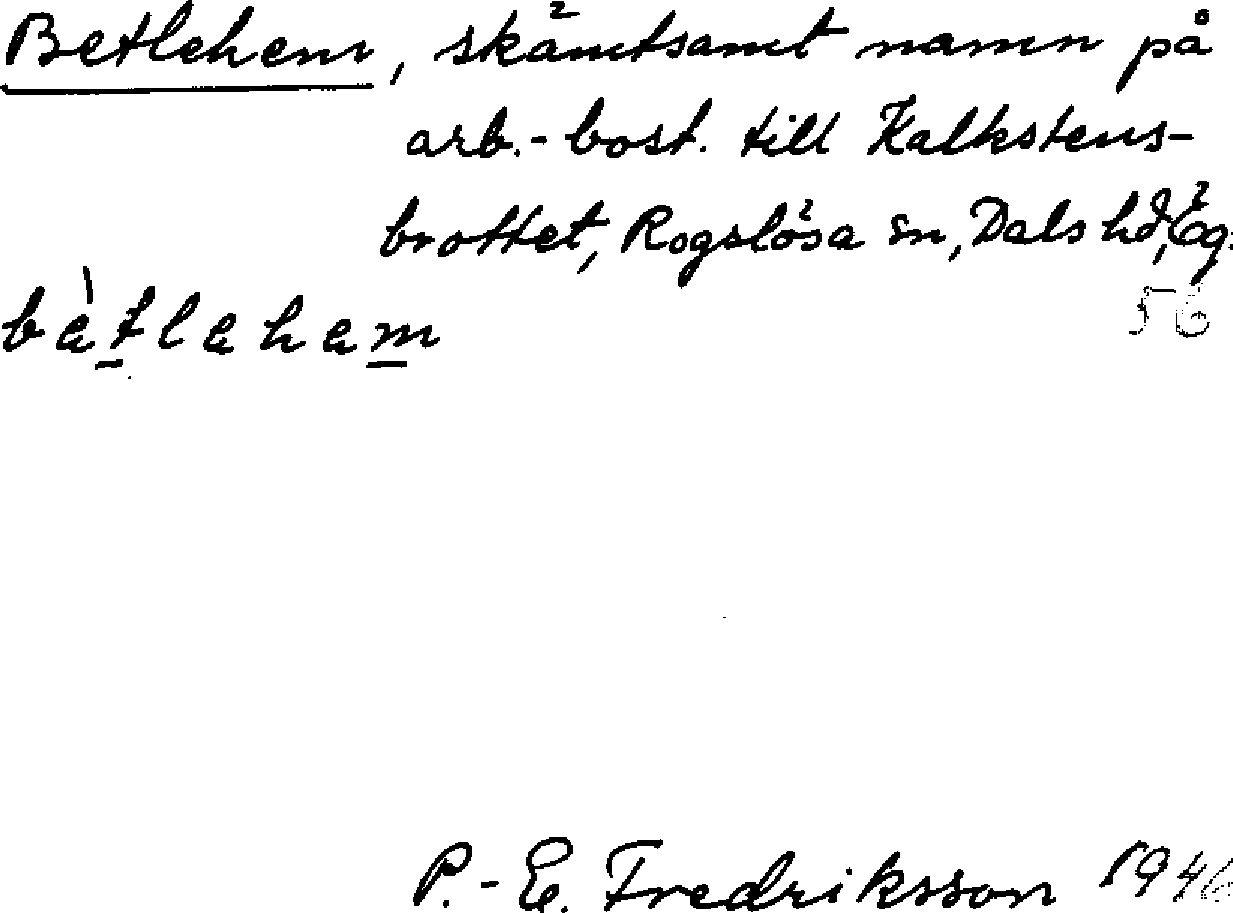 Betlehem, skämtsamt namn på
arb.-bost. till Kalkstens-
brottet, Rogslösa sn, Dals hd, Ög.
56
bàtlaham
P.-E. Fredriksson 1946